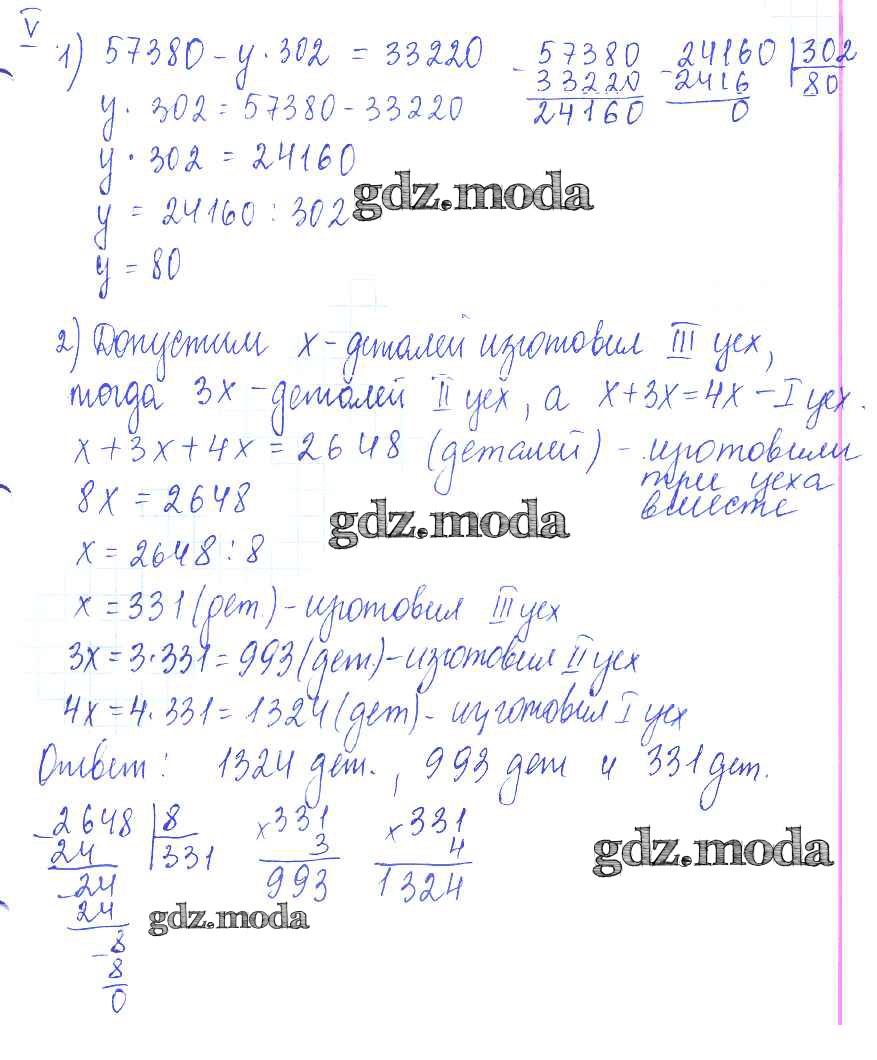 V
1) 57380 - y · 302 = 33220
y · 302 = 57380 - 33220
y · 302 = 24160
y = 24160 : 302
y = 80
- 57380
33220
24160
- 24160 | 302
2416 80
0
gdz.moda
2) Допустим x - деталей изготовил III цех,
тогда 3x - деталей II цех, а x + 3x = 4x - I цех.
x + 3x + 4x = 2648 (деталей) - изготовили
три цеха
вместе
8x = 2648
gdz.moda
x = 2648 : 8
x = 331 (дет.) - изготовил III цех
3x = 3 · 331 = 993 (дет.) - изготовил II цех
4x = 4 · 331 = 1324 (дет) - изготовил I цех
Ответ: 1324 дет., 993 дет и 331 дет.
- 2648 | 8
24 331
- 24
24
- 8
8
0
x 331
3
993
x 331
4
1324
gdz.moda
gdz.moda